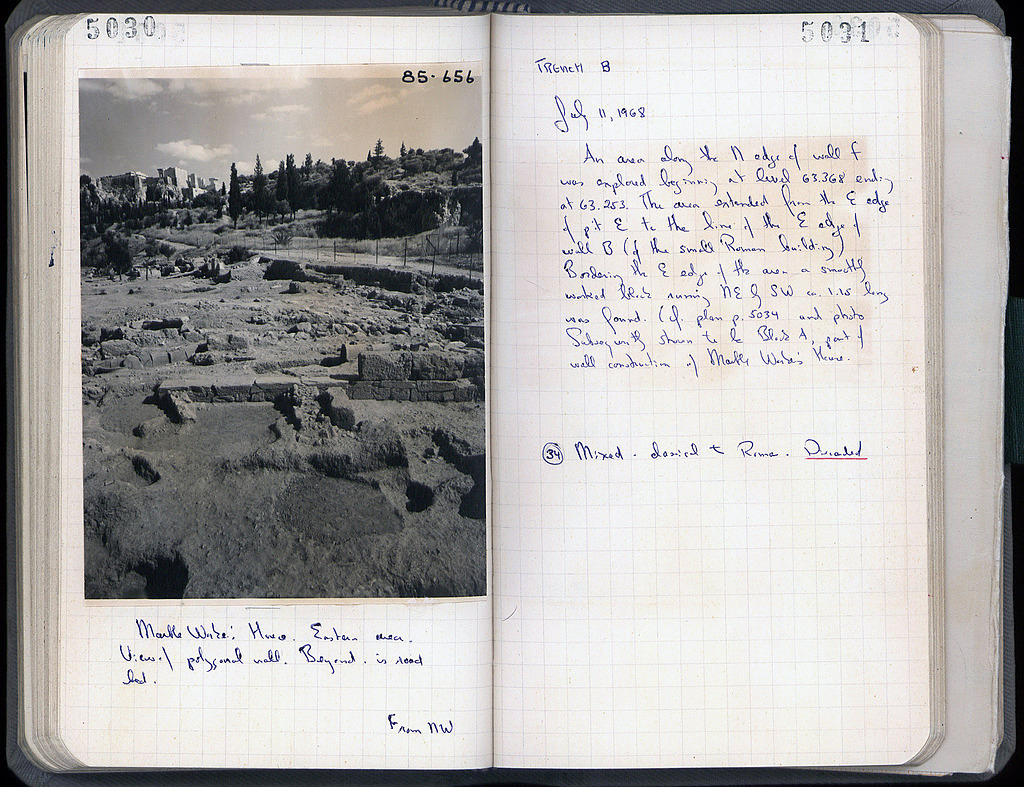 5030
85-656
Marble Worker's House. Eastern area.
View of polygonal wall. Beyond is road
bed.
From NW
5031
TRENCH B
July 11, 1968
An area along the N edge of wall F
was explored beginning at level 63.368 ending
at 63.253. The area extended from the E edge
of pit E to the line of the E edge of
wall B (of the small Roman building)
Bordering the E edge of the area a smoothly
worked block running NE by SW ca. 1.15 long
was found. (cf. plan p. 5034 and photo
Subsequently shown to be Block A, part of
wall construction of Marble Worker's House.
34 Mixed - classical + Roman. Discarded